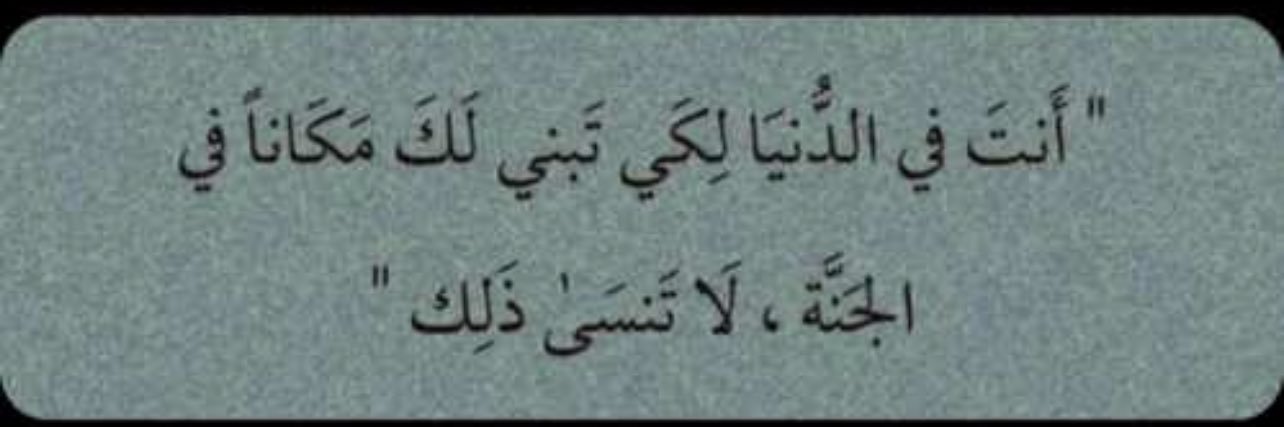 " أَنتَ في الدُّنيَا لِكَي تَبني لَكَ مَكَاناً في
الجَنَّة ، لَا تَنسَىٰ ذَلِك "